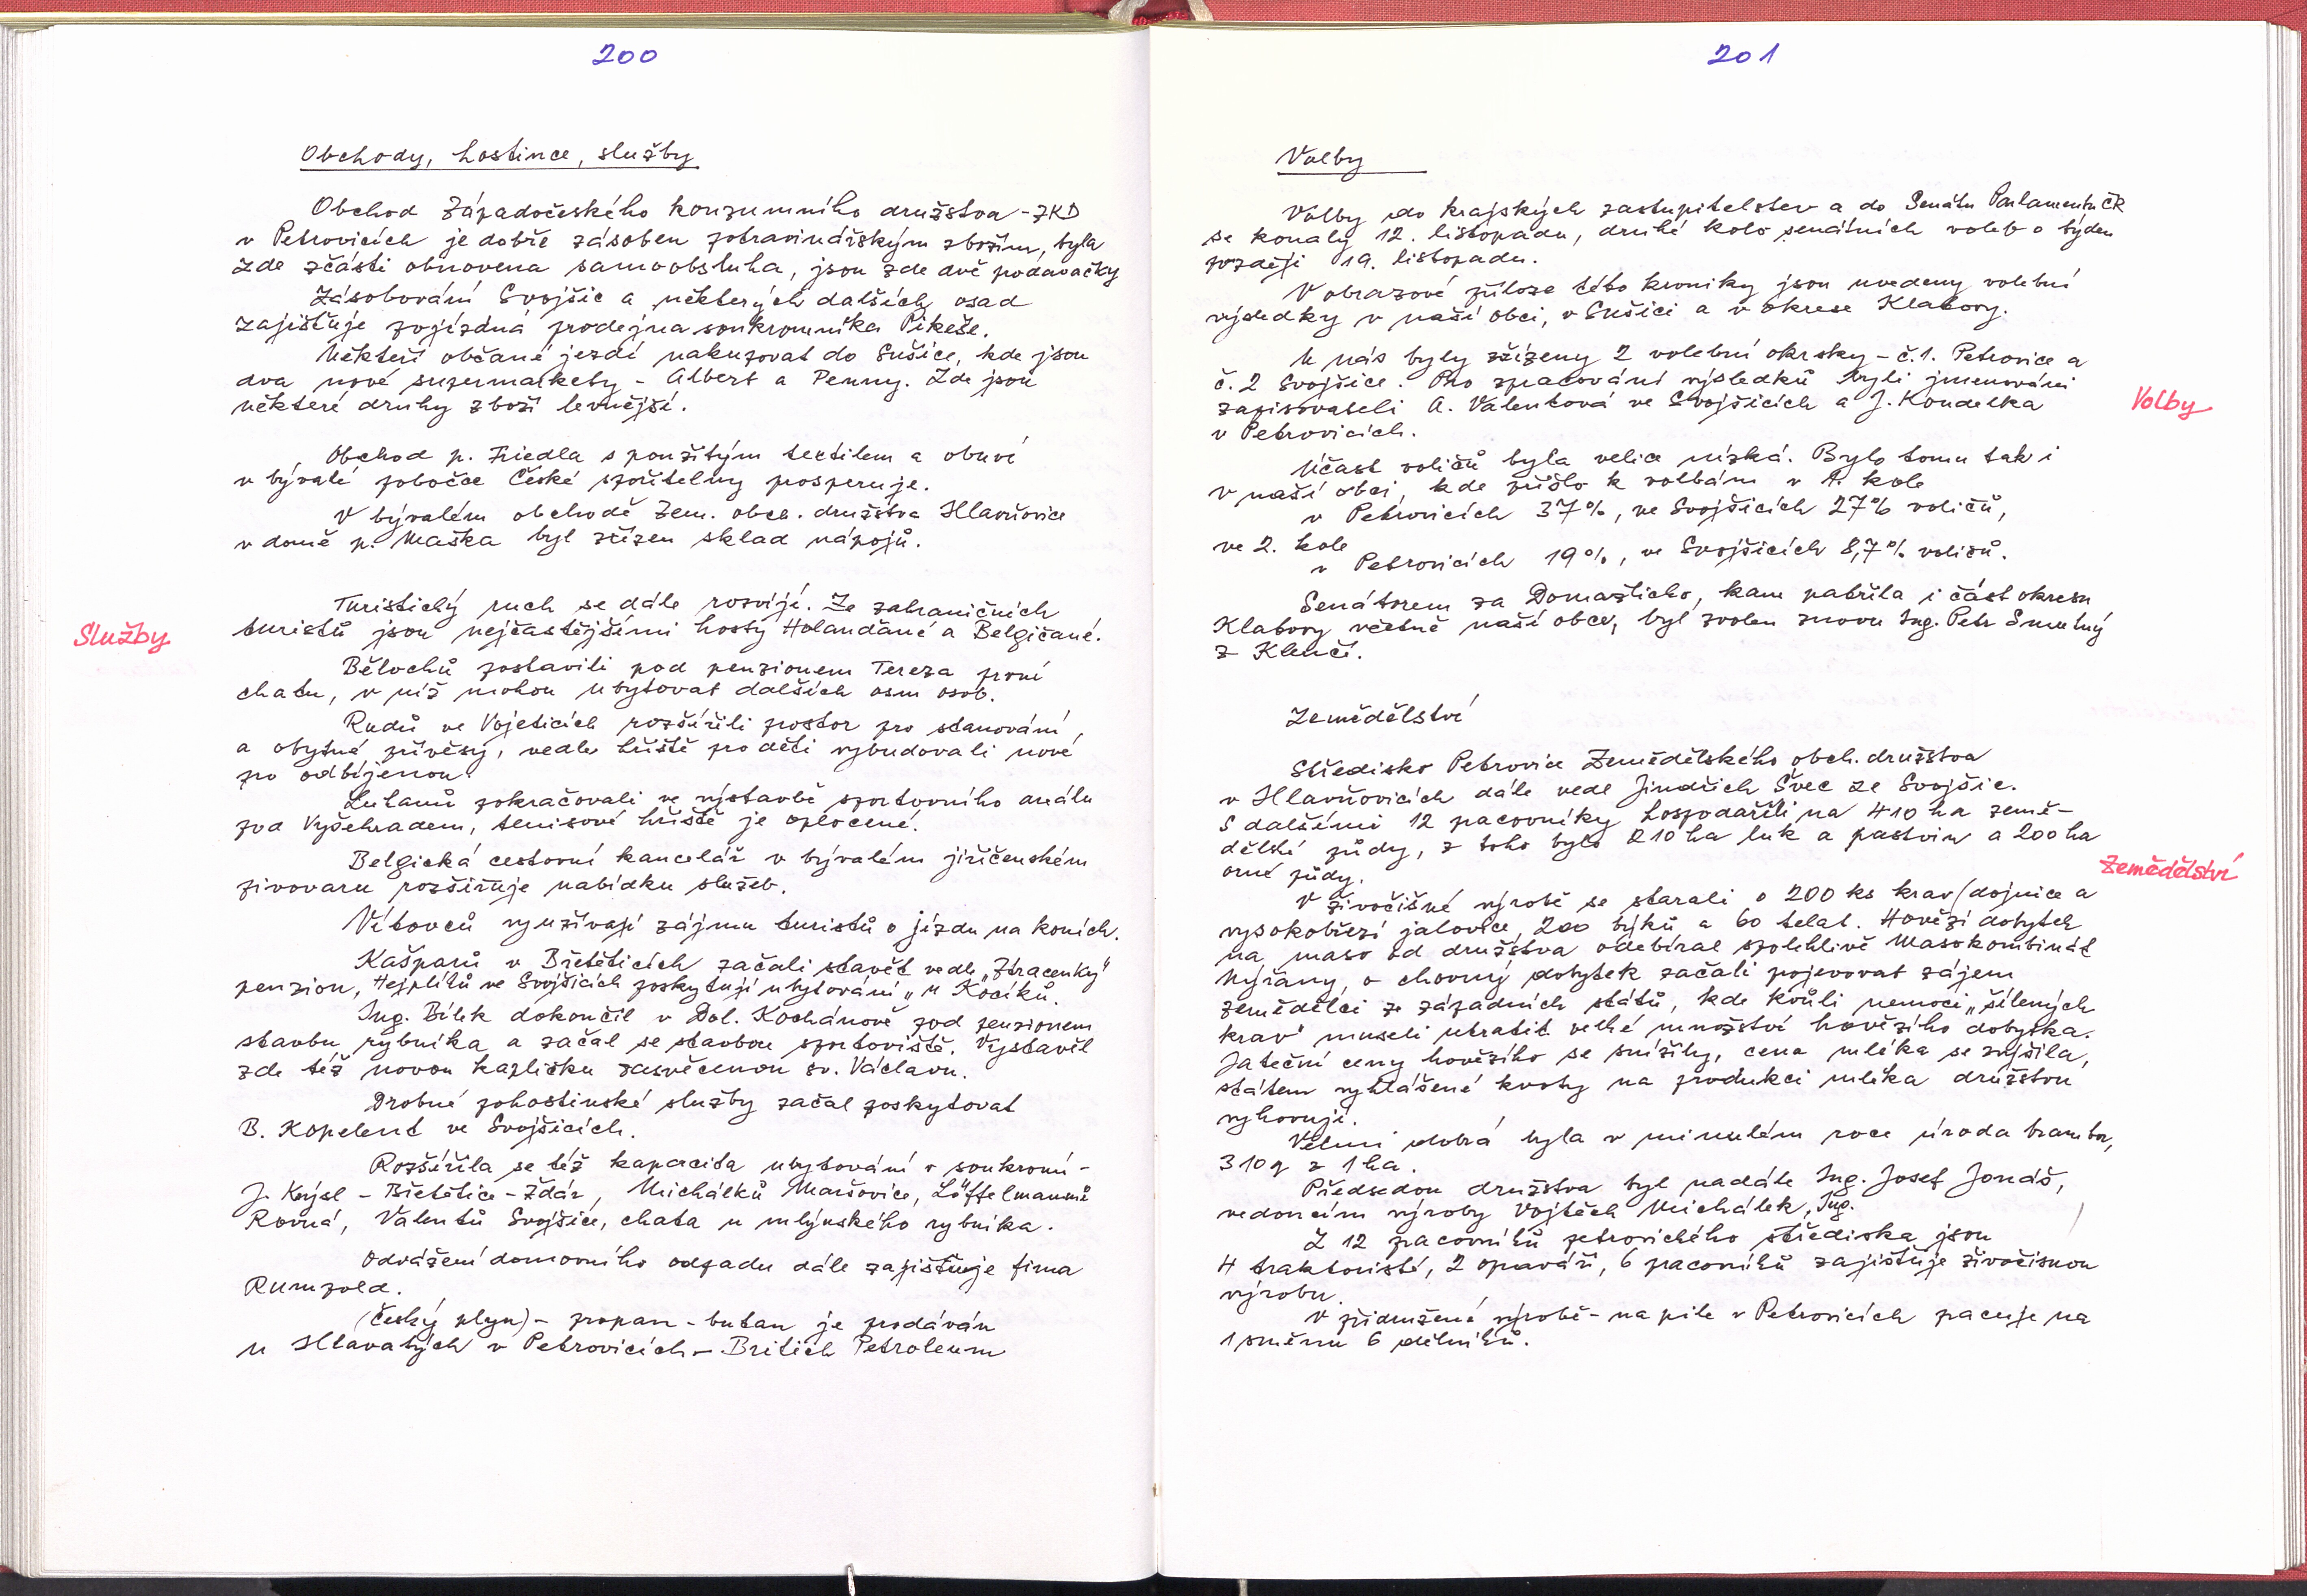 200
Obchody, hostince, služby
Obchod Západočeského konzumního družstva - ZKD
v Petrovicích je dobře zásoben potravinářským zbožím, byla
zde zčásti obnovena samoobsluha, jsou zde dvě prodavačky
Zásobování Svojšic a některých dalších osad
zajišťuje pojízdná prodejna soukromníka Pikeše.
Někteří občané jezdí nakupovat do Sušice, kde jsou
dva nové supermarkety - Albert a Penny. Zde jsou
některé druhy zboží levnější.
Obchod p. Friedla s použitým textilem a obuví
v bývalé pobočce České spořitelny prosperuje.
V bývalém obchodě Zem. obch. družstva Hlavňovice
v domě p. Maška byl zřízen sklad nápojů.
Služby
Turistický ruch se dále rozvíjí. Ze zahraničních
turistů jsou nejčastějšími hosty Holanďané a Belgičané.
Bělochů postavili pod penzionem Tereza první
chatu, v níž mohou ubytovat dalších osm osob.
Rudů ve Vojeticích rozšířili prostor pro stanování,
a obytné přívěsy, vedle hřiště pro děti vybudovali nové
pro odbíjenou.
Luhanů pokračovali ve výstavbě sportovního areálu
pod Vyšehradem, tenisové hřiště je oplocené.
Belgická cestovní kancelář v bývalém jiříčenském
pivovaru rozšiřuje nabídku služeb.
Vítovců využívají zájmu turistů o jízdu na koních.
Kašparů v Břetěticích začali stavět vedle „Ztracenky"
penzion, Hejplíků ve Svojšicích poskytují ubytování „U Kocíků.
Ing. Bílek dokončil v Dol. Kochánově pod penzionem
stavbu rybníka a začal se stavbou sportoviště. Vystavěl
zde též novou kapličku zasvěcenou sv. Václavu.
Drobné pohostinské služby začal poskytovat
B. Kopelent ve Svojšicích.
Rozšířila se též kapacita ubytování v soukromí -
J. Krýsl - Břetětice - Ždár, Michálků Maršovice, Löffelmannů
Rovná, Valentů Svojšice, chata u mlýnského rybníka.
Odvážení domovního odpadu dále zajišťuje firma
Rumpold.
(Český plyn) - propan - butan je prodáván
u Hlavatých v Petrovicích - Britich Petroleum
201
Volby
Volby do krajských zastupitelstev a do Senátu Parlamentu ČR
se konaly 12. listopadu, druhé kolo senátních voleb o týden
později 19. listopadu.
V obrazové příloze této kroniky jsou uvedeny volební
výsledky v naší obci, v Sušici a v okrese Klatovy.
U nás byly zřízeny 2 volební okrsky - č.1. Petrovice a
č. 2 Svojšice. Pro zpracování výsledků byli jmenováni
zapisovateli A. Valentová ve Svojšicích a J. Koudelka
v Petrovicích.
Volby
Účast voličů byla velice nízká. Bylo tomu tak i
v naší obci, kde přišlo k volbám v 1. kole
v Petrovicích 37%, ve Svojšicích 27% voličů,
ve 2. kole
v Petrovicích 19%, ve Svojšicích 8,7% voličů.
Senátorem za Domažlicko, kam patřila i část okresu
Klatovy včetně naší obce, byl zvolen znovu Ing. Petr Smutný
z Klenčí.
Zemědělství
Středisko Petrovice Zemědělského obch. družstva
v Hlavňovicích dále vede Jindřich Švec ze Svojšic.
S dalšími 12 pracovníky hospodařili na 410 ha země-
dělské půdy, z toho bylo 210 ha luk a pastvin a 200 ha
orné půdy.
Zemědělství
V živočišné výrobě se starali o 200 ks krav (dojnice a
vysokobřezí jalovice, 200 býků a 60 telat. Hovězí dobytek
na maso od družstva odebíral spolehlivě Masokombinát
Nýřany, o chovný dobytek začali pojevovat zájem
zemědělci ze západních států, kde kvůli nemoci „šílených
krav" museli utratit velké množství hovězího dobytka.
Jateční ceny hovězího se snížily, cena mléka se zvýšila,
státem vyhlášené kvoty na produkci mléka družstvu
vyhovují.
Velmi dobrá byla v minulém roce úroda brambor,
310 q z 1 ha.
Předsedou družstva byl nadále Ing. Josef Jonáš,
vedoucím výroby Vojtěch Michálek, Ing.
Z 12 pracovníků petrovického střediska jsou
4 traktoristé, 2 opraváři, 6 pracovníků zajišťuje živočisnou
výrobu.
V přidružené výrobě - na pile v Petrovicích pracuje na
1 směnu 6 dělníků.